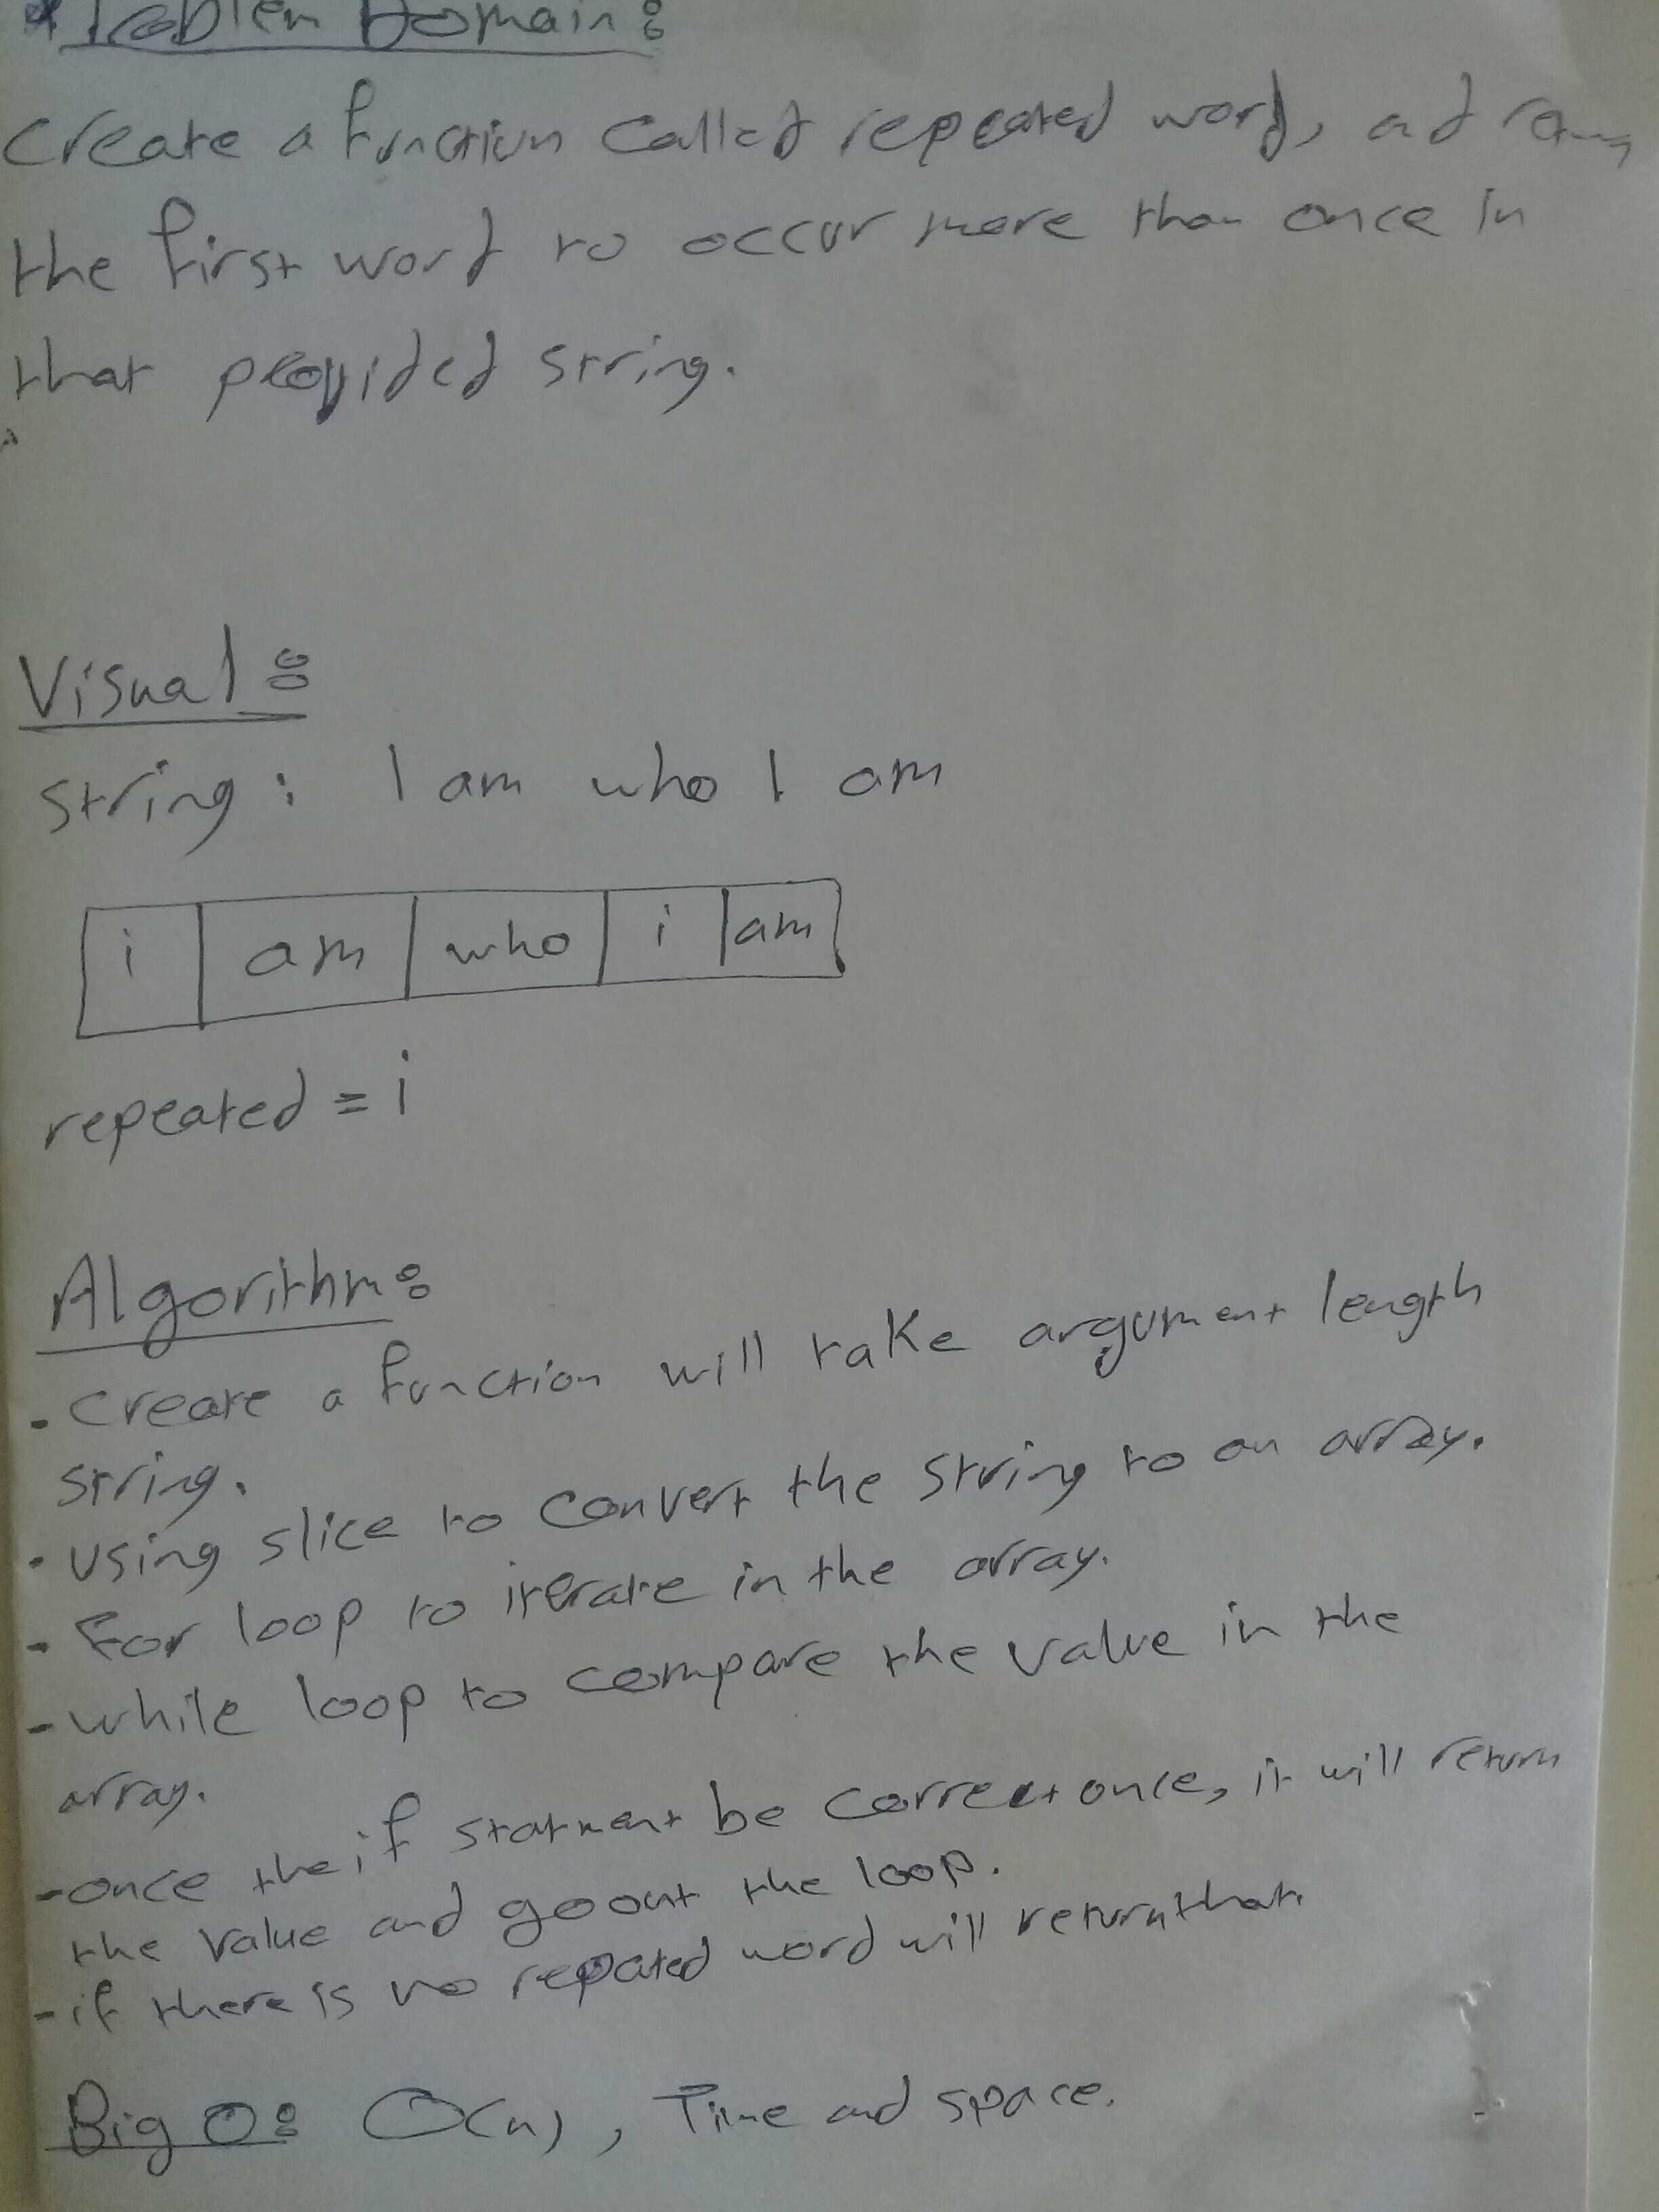 Problem Domain:
Create a function called repeated word, ad
the first word to occur more than once in
that provided string.
Visual:
string: I am who I am
i am who i am
repeated = i
Algorithm:
- create a function will take argument length
string.
- using slice to convert the string to an array.
- For loop to iterate in the array.
- while loop to compare the value in the
array.
- once the if statment be correct once, it will return
the value and go out the loop.
- if there is no repeated word will return that.
Big O: O(n), Time and space.